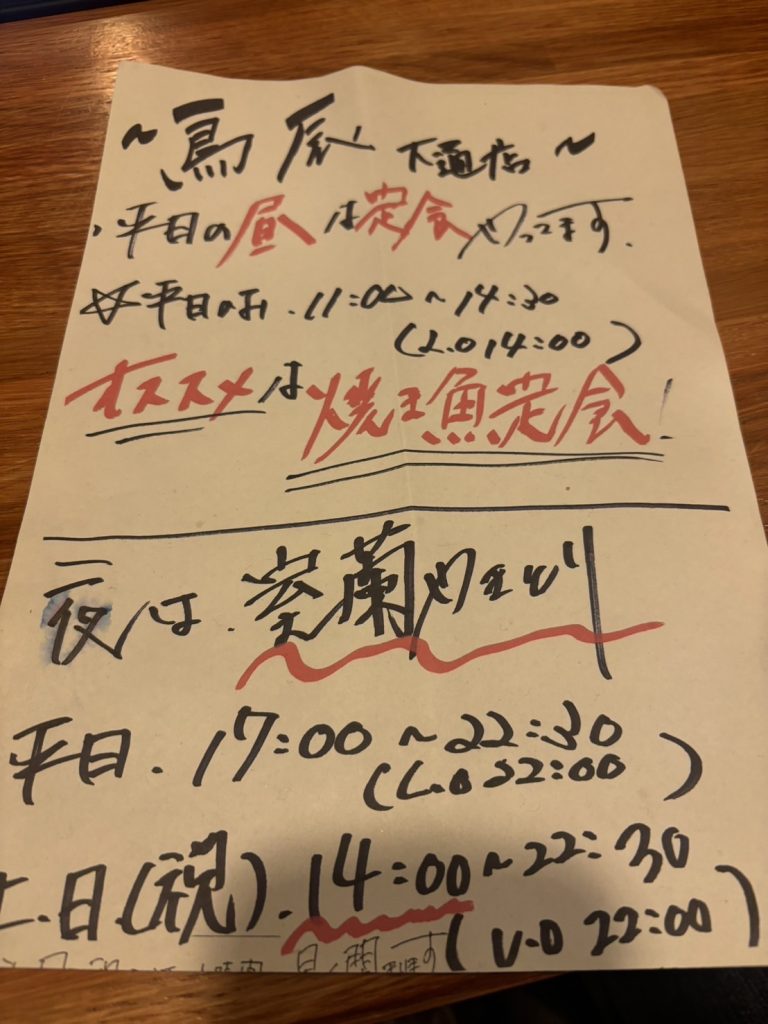 ~鳥辰 下通店~
平日の昼は定食やってます.
☆平日のみ.11:00~14:30
(L.O 14:00)
オススメは焼き魚定食!
夜は.室蘭やきとり
平日.17:00~22:30
(L.O 22:00)
土.日.(祝).14:00~22:30
(L.O 22:00)